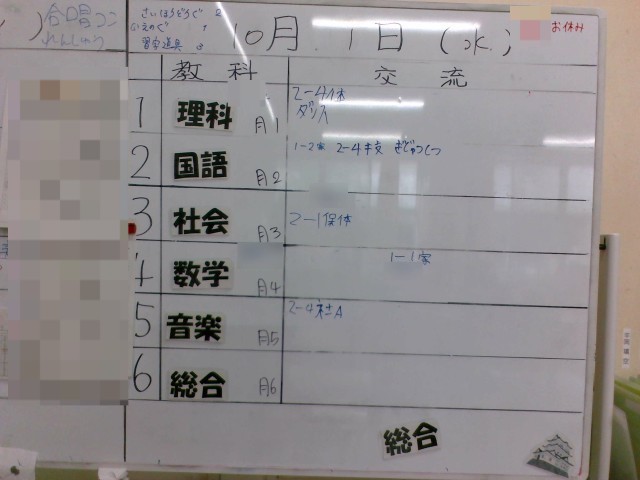 合唱コン
れんしゅう
さいほうどうぐ 2
習字道具 3
10月 1日 (水)
お休み
教科 交流
1 理科 月1 2-4体
ダンス
2 国語 月2 1-2家 2-4 ぎじゅつ
3 社会 月3 2-1保体
4 数学 月4 1-1家
5 音楽 月5 2-4社A
6 総合 月6
総合